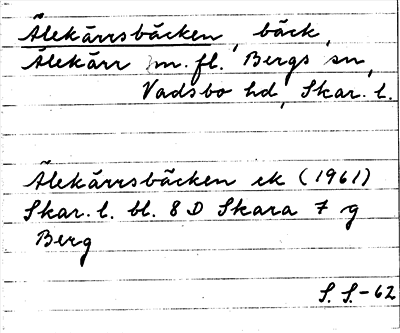 Älekärrsbäcken, bäck,
Älekärr m.fl. Bergs sn,
Vadsbo hd, Skar. l.
Älekärrsbäcken ek (1961)
Skar. l. bl. 8 D Skara 7 g
Berg
S. S.-62